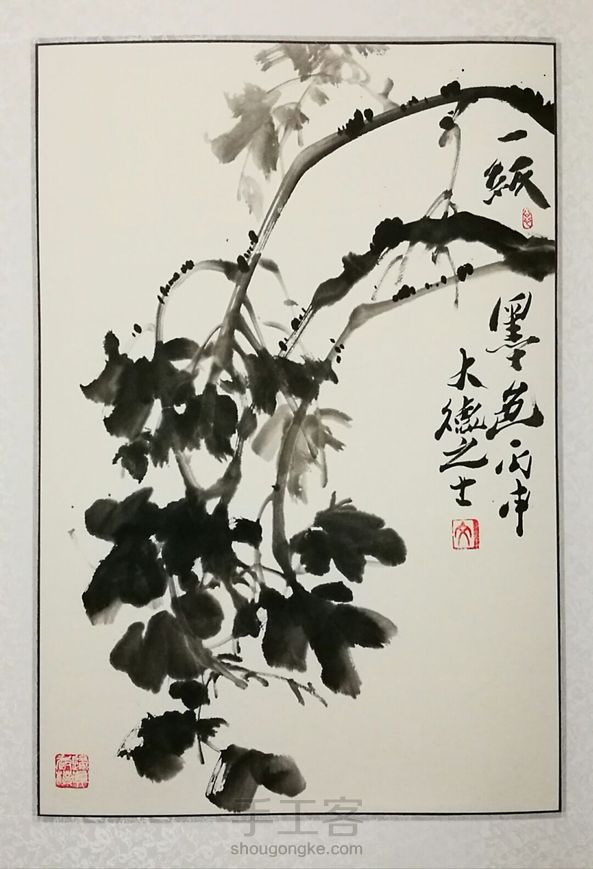 一
墨 丙申
大德之士
手工客
shougongke.com